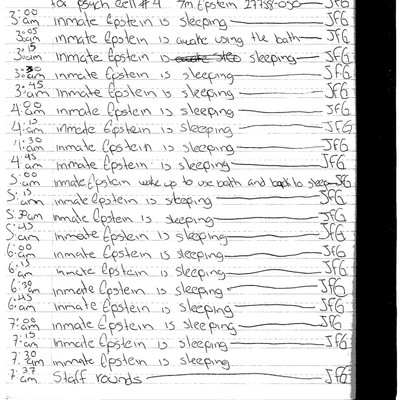 for psych cell #4 I/m Epstein JFG
3:00 am inmate Epstein is sleeping JFG
3:05 am inmate Epstein is awake using the bath JFG
3:15 am inmate Epstein is awake sleeping JFG
3:30 am inmate Epstein is sleeping JFG
3:45 am inmate Epstein is sleeping JFG
4:00 am inmate Epstein is sleeping JFG
4:15 am inmate Epstein is sleeping JFG
4:30 am inmate Epstein is sleeping JFG
4:45 am inmate Epstein is sleeping JFG
5:00 am inmate Epstein woke up to use bath and back to sleep JFG
5:15 am inmate Epstein is sleeping JFG
5:30 am inmate Epstein is sleeping JFG
5:45 am inmate Epstein is sleeping JFG
6:00 am inmate Epstein is sleeping JFG
6:15 am inmate Epstein is sleeping JFG
6:30 am inmate Epstein is sleeping JFG
6:45 am inmate Epstein is sleeping JFG
7:00 am inmate Epstein is sleeping JFG
7:15 am inmate Epstein is sleeping JFG
7:30 am inmate Epstein is sleeping
7:37 am Staff rounds JFG